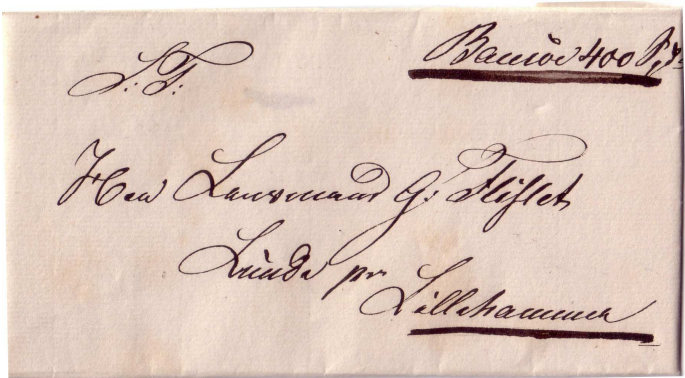 Bancöe 400 Spd
S: T:
Herr Lensmand G: Fliflet
Lunde pr
Lillehammer